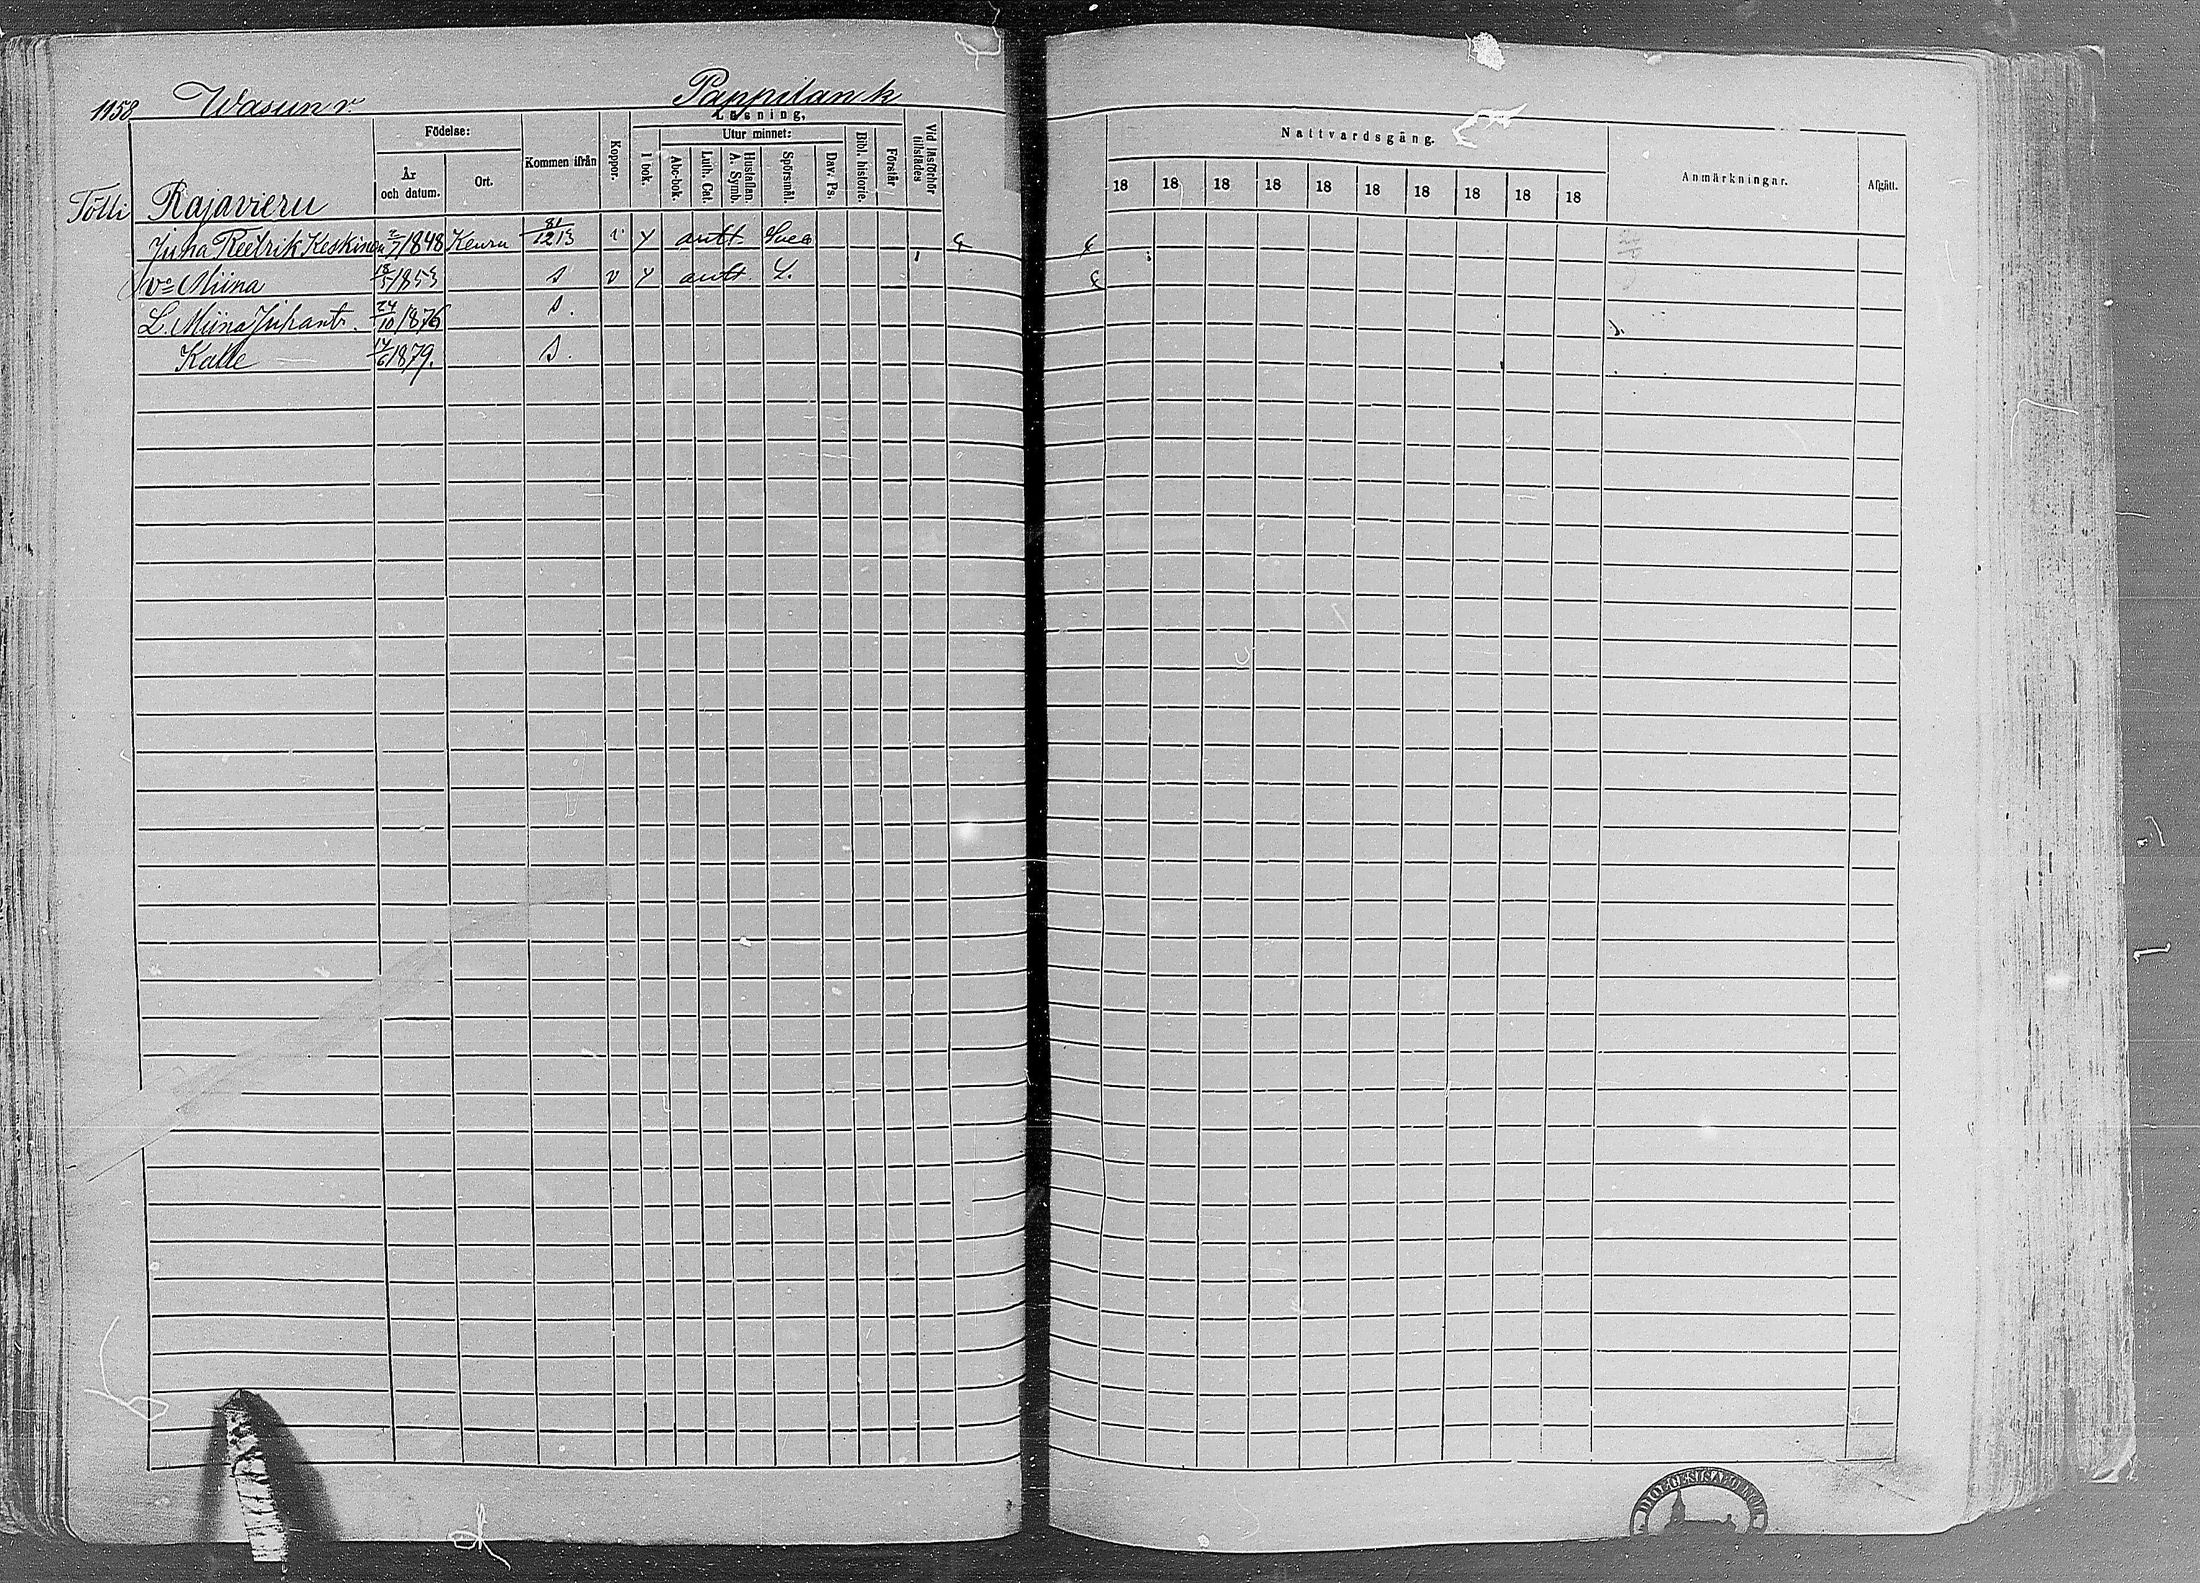 1158 Wasun r. Pappilan k
Läsning,
Födelse: Utur minnet:
År och datum. Ort. Kommen ifrån Koppor. I bok. Abc-bok. Luth. Cat. Hustaflan. A. Symb. Spörsmål. Dav. Ps. Bibl. historie. Förstår Vid läsförhör tillstädes
Nattvardsgång. Anmärkningar. Afgått.
18 18 18 18 18 18 18 18 18 18
Tölli Rajavieru
Juha Reetrik Keskinen 2/7 1848 Keuru 81/1213 v y antt.
vo Miina 18/5 1853 s v y antt. S.
L. Miina Juhant. 24/10 1876 s.
Kalle 17/6 1879. s.